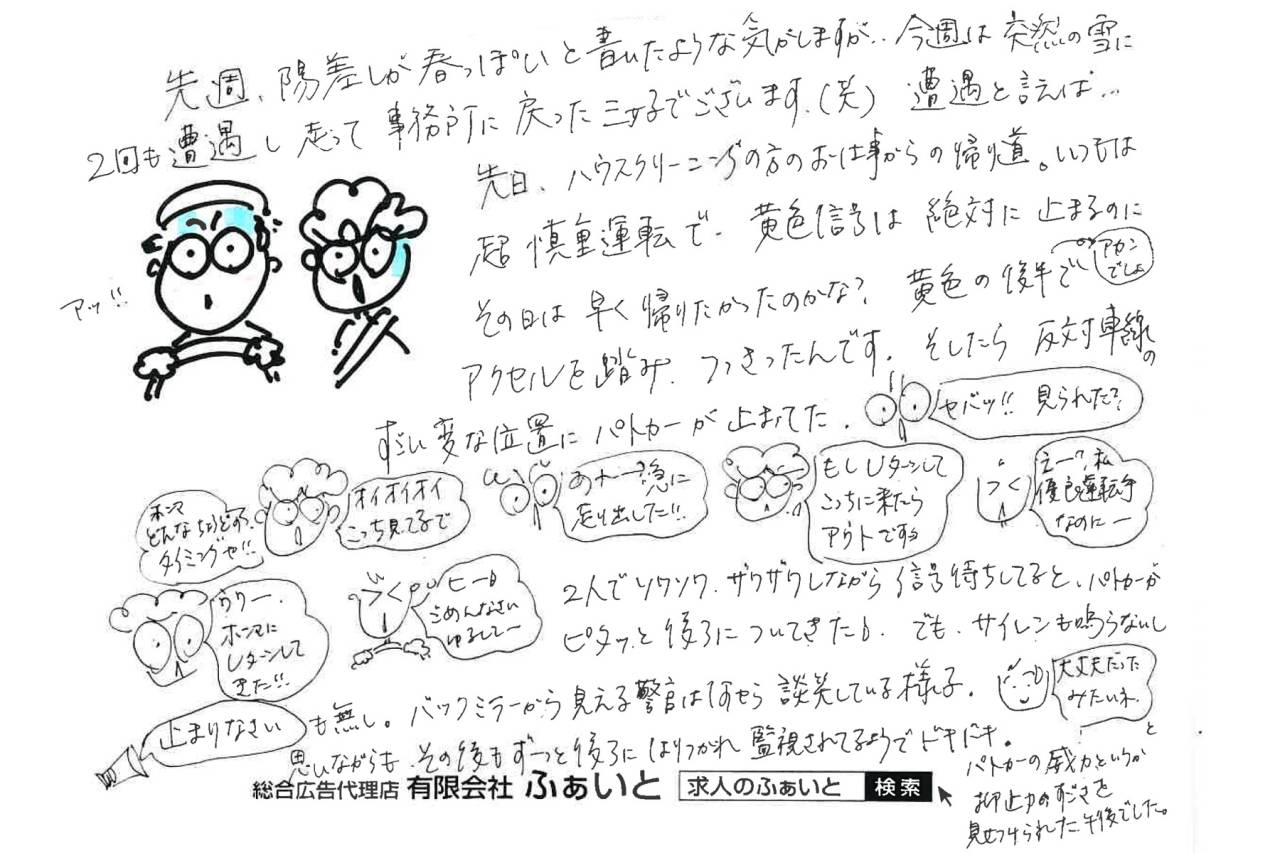 先週、陽差しが春っぽいと書いたような気がしますが‥今週は突然の雪に
2回も遭遇し走って事務所に戻った三好でございます。(笑) 遭遇と言えば…
先日、ハウスクリーニングの方のお仕事からの帰り道。いつもは
超慎重運転で、黄色信号は絶対に止まるのに
その日は早く帰りたかったのかな? 黄色の後半で
アカンでしょ
アッ!!
アクセルを踏み、つっきったんです。そしたら反対車線の
すごい変な位置にパトカーが止まってた。
ヤバッ!! 見られた?
ホンマ
どんなちょうどのタイミングや!!
オイオイオイ
こっち見てるで
あれー急に
走り出した!!
もしUターンして
こっちに来たら
アウトですね
えー?私
優良運転手
なのにー
つく
2人でソワソワ、ザワザワしながら信号待ちしてると、パトカーが
ピタッと後ろについてきた。でも、サイレンも鳴らないし
うわー、
ホンマに
Uターンして
きた!!!
ヒー
ごめんなさい
ゆるしてー
止まりなさい
も無し。バックミラーから見える警官はなにやら談笑している様子。
大丈夫だった
みたいネ
と
思いながらも、その後もずーっと後ろにはりつかれ監視されてるようでドキドキ。
パトカーの威力というか
抑止力のすごさを
見せつけられた午後でした。
総合広告代理店 有限会社 ふぁいと 求人のふぁいと 検索